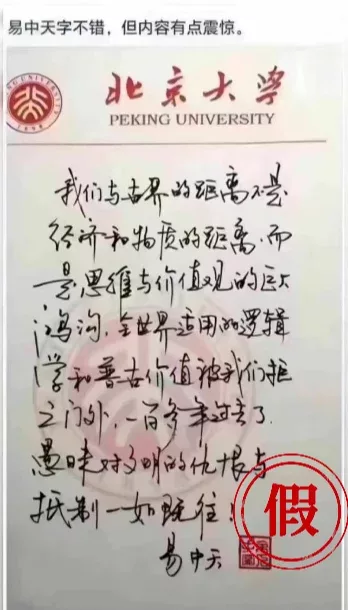 易中天字不错，但内容有点震惊。
北京大学
PEKING UNIVERSITY
我们与世界的距离不是
经济和物质的距离,而
是思维与价值观的巨大
鸿沟,全世界适用的逻辑
学和普世价值被我们拒
之门外,一百多年过去了
愚昧对文明的仇恨与
抵制一如既往!
易中天
假